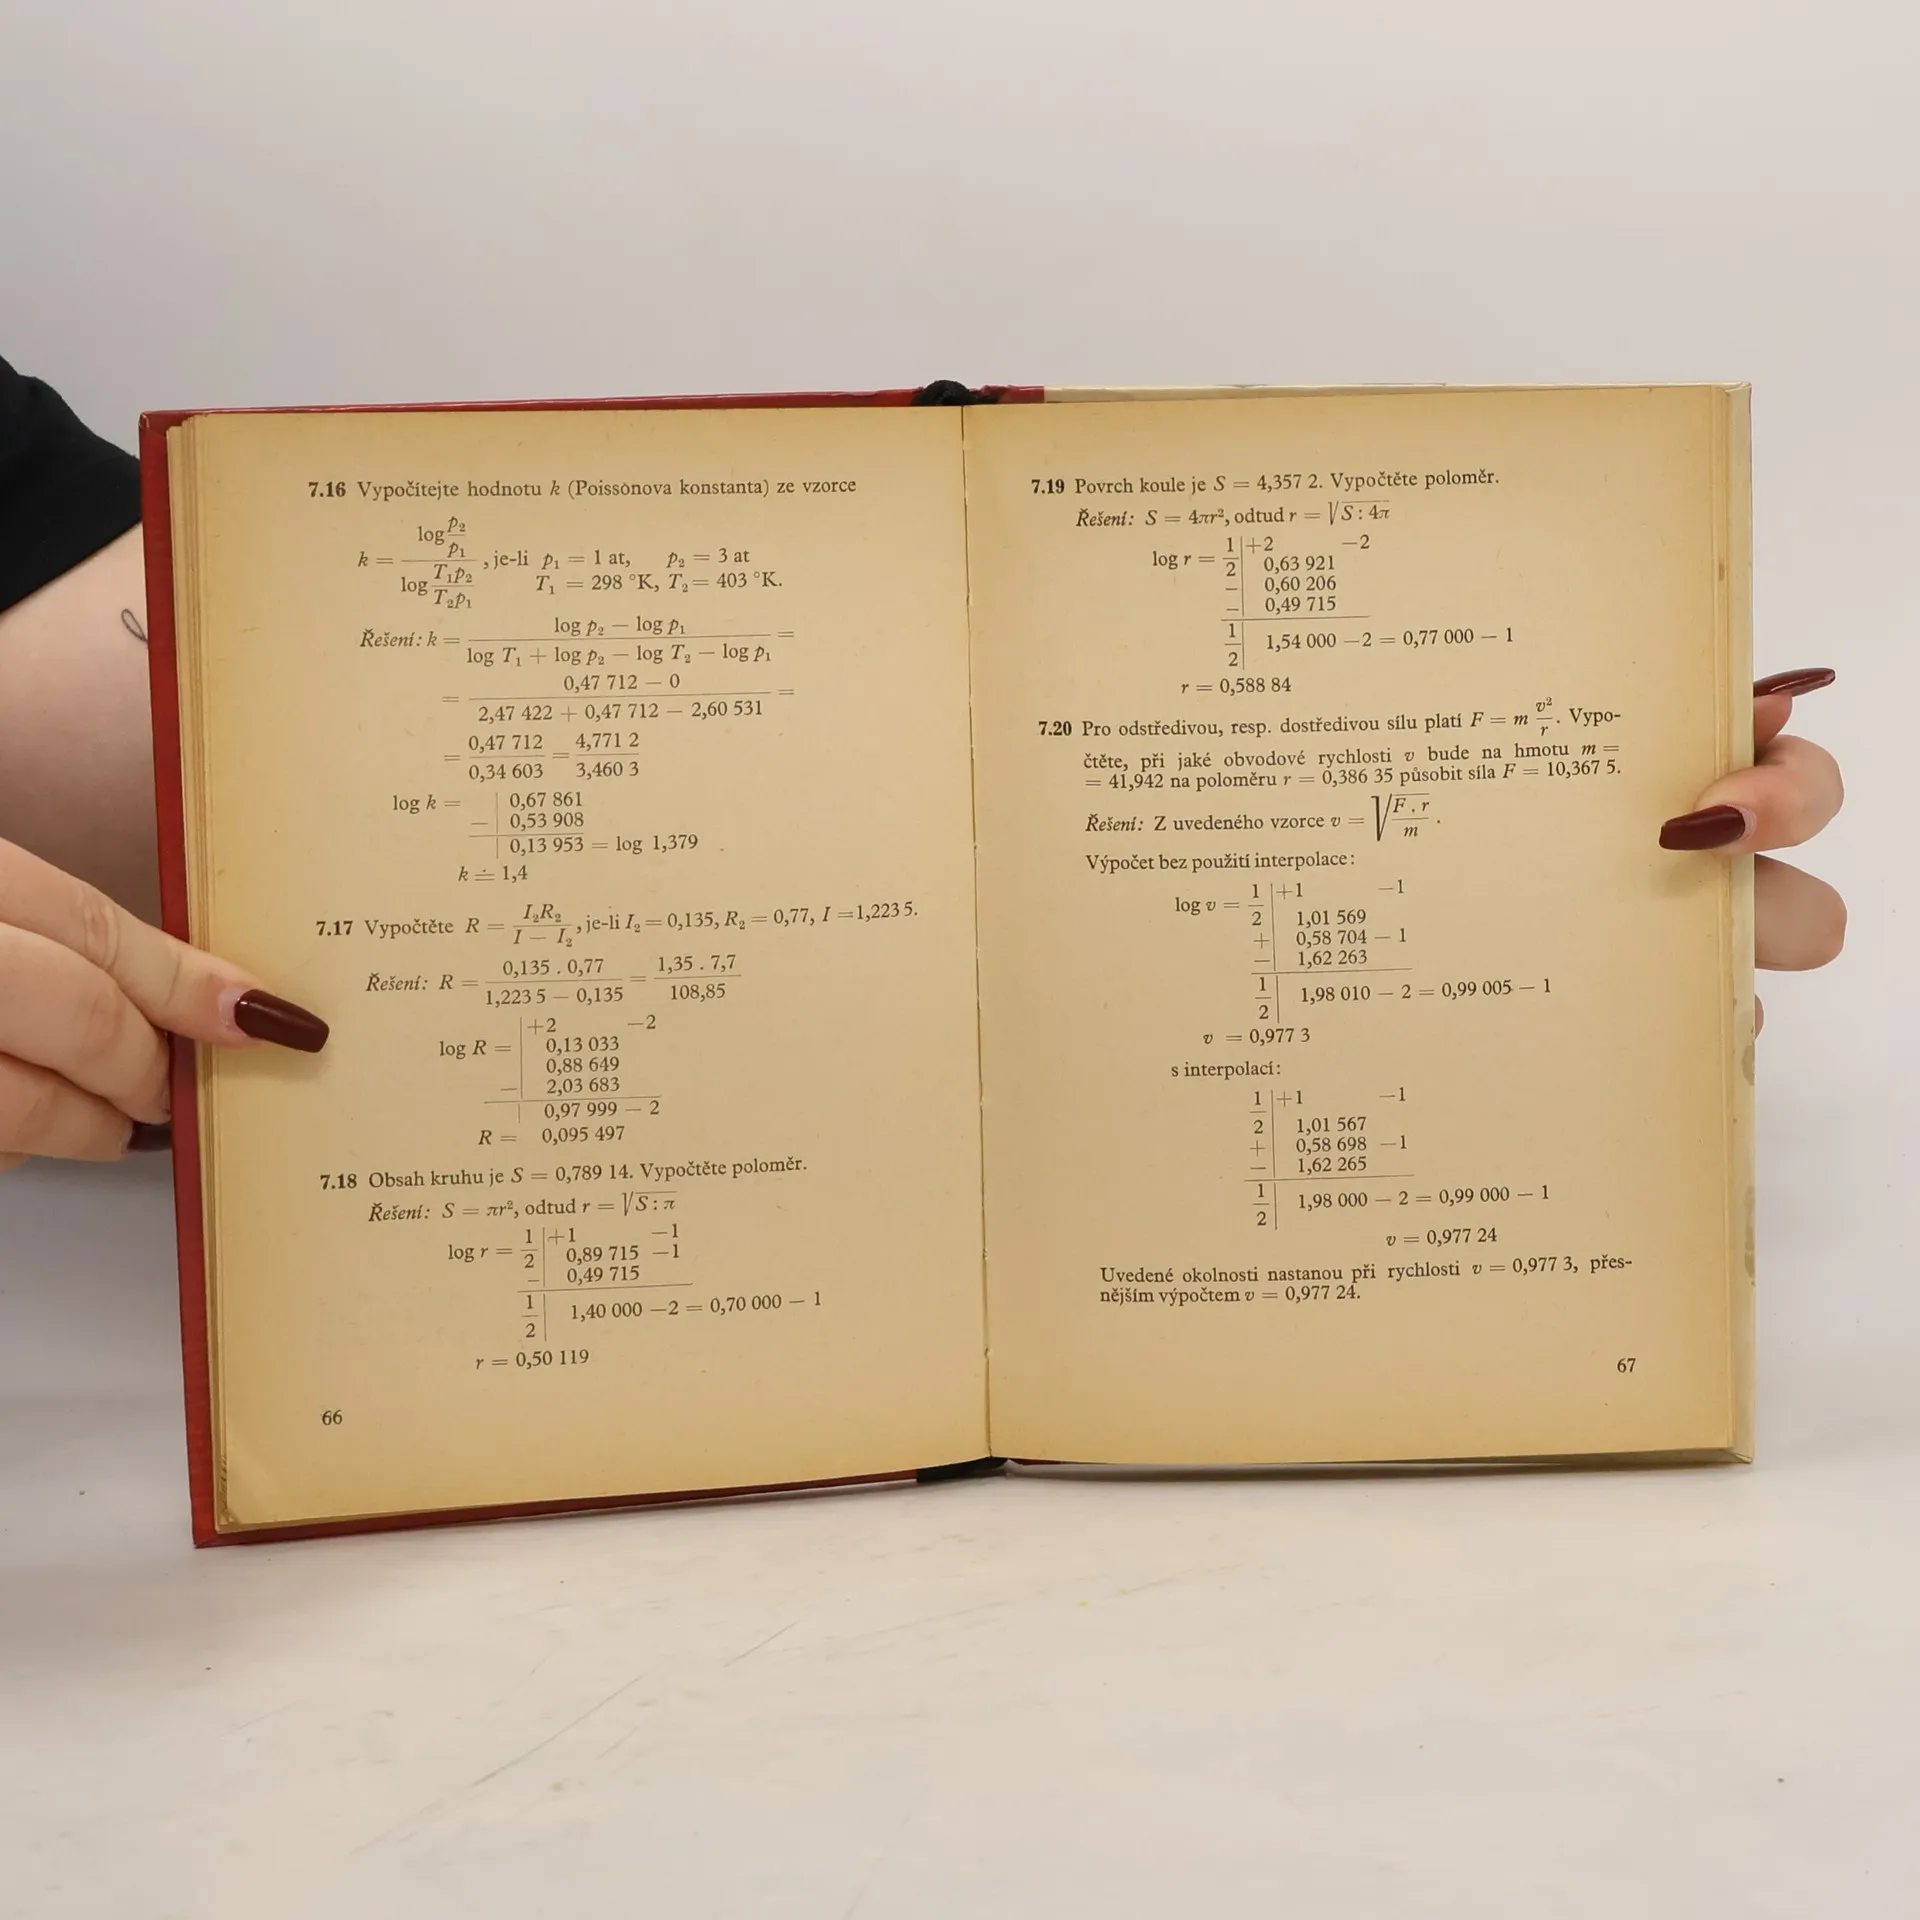 7.16 Vypočítejte hodnotu k (Poissonova konstanta) ze vzorce
k = log p₂/p₁ / log T₁p₂/T₂p₁ , je-li p₁ = 1 at, p₂ = 3 at
T₁ = 298 °K, T₂ = 403 °K.
Řešení: k = log p₂ − log p₁ / log T₁ + log p₂ − log T₂ − log p₁ =
= 0,47 712 − 0 / 2,47 422 + 0,47 712 − 2,60 531 =
= 0,47 712 / 0,34 603 = 4,771 2 / 3,460 3
log k = | 0,67 861
− | 0,53 908
| 0,13 953 = log 1,379
k ≐ 1,4
7.17 Vypočtěte R = I₂R₂ / I − I₂ , je-li I₂ = 0,135, R₂ = 0,77, I = 1,223 5.
Řešení: R = 0,135 . 0,77 / 1,223 5 − 0,135 = 1,35 . 7,7 / 108,85
| +2 −2
log R = | 0,13 033
| 0,88 649
− | 2,03 683
| 0,97 999 − 2
R = 0,095 497
7.18 Obsah kruhu je S = 0,789 14. Vypočtěte poloměr.
Řešení: S = πr², odtud r = √S : π
log r = 1/2 | +1 −1
| 0,89 715 −1
− | 0,49 715
1/2 | 1,40 000 −2 = 0,70 000 − 1
r = 0,50 119
66
7.19 Povrch koule je S = 4,357 2. Vypočtěte poloměr.
Řešení: S = 4πr², odtud r = √S : 4π
log r = 1/2 | +2 −2
| 0,63 921
− | 0,60 206
− | 0,49 715
1/2 | 1,54 000 −2 = 0,77 000 − 1
r = 0,588 84
7.20 Pro odstředivou, resp. dostředivou sílu platí F = m v²/r. Vypo-
čtěte, při jaké obvodové rychlosti v bude na hmotu m =
= 41,942 na poloměru r = 0,386 35 působit síla F = 10,367 5.
Řešení: Z uvedeného vzorce v = √F . r / m .
Výpočet bez použití interpolace:
log v = 1/2 | +1 −1
| 1,01 569
+ | 0,58 704 − 1
− | 1,62 263
1/2 | 1,98 010 − 2 = 0,99 005 − 1
v = 0,977 3
s interpolací:
1/2 | +1 −1
| 1,01 567
+ | 0,58 698 −1
− | 1,62 265
1/2 | 1,98 000 − 2 = 0,99 000 − 1
v = 0,977 24
Uvedené okolnosti nastanou při rychlosti v = 0,977 3, přes-
nějším výpočtem v = 0,977 24.
67